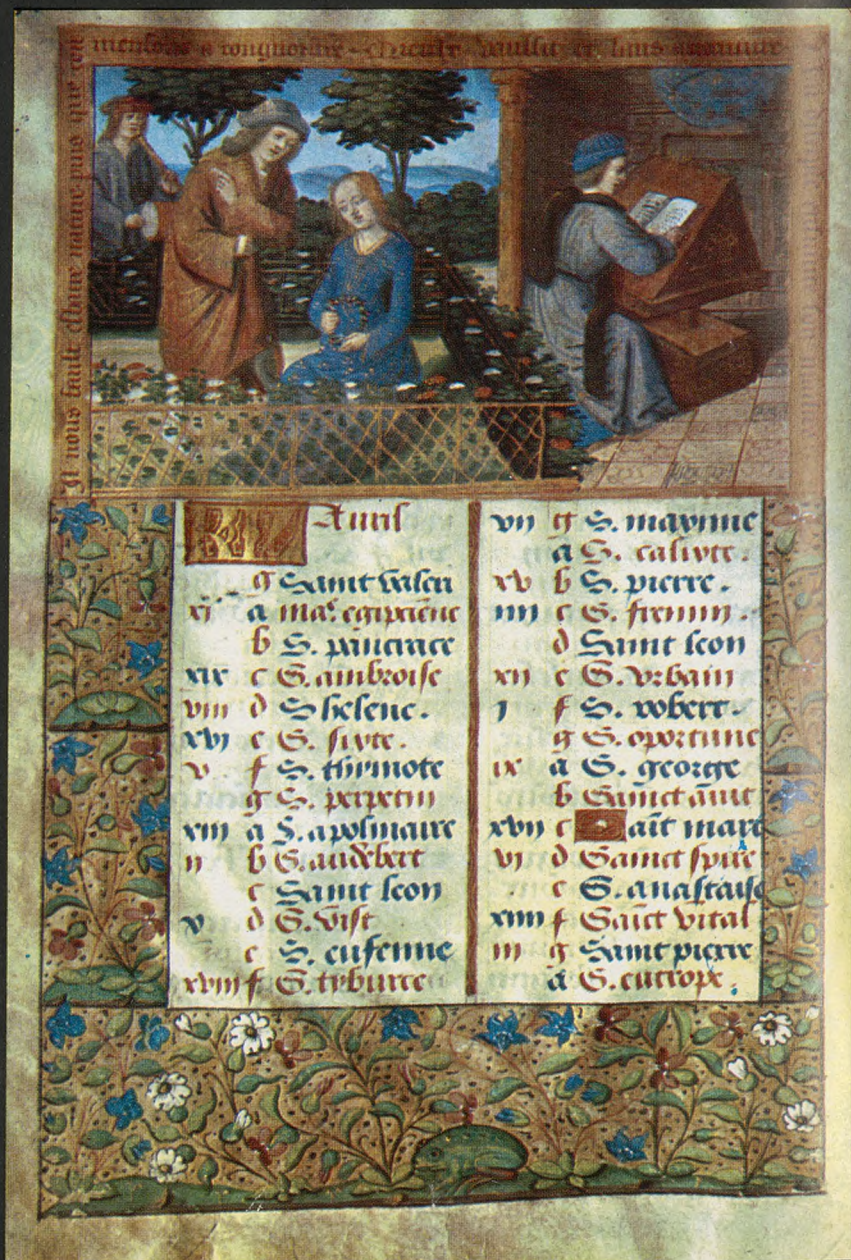 Il nous fault estour nature puis que con
mensons a congnoistre
Auril
g Saint valeri
xi a mar. egipciene
b S. pancrace
xix c S. ambroise
viii d S helene.
xvi e S. sixte.
v f S. thimote
g S. perpetin
xiii a S. apolinaire
ii b S. audebert
c Saint leon
v d S. vist
e S. eufenne
xviii f S. tyburce
vii g S. maxime
a S. calixte.
xv b S. pierre.
iiii c S. fremin.
d Saint leon
xii e S. vrbain
j f S. robert.
g S. oportune
ix a S. george
b Sainct
xvii c aīt marc
vi d Sainct spire
e S. anastaise
xiiii f Saīct vital
iii g Saint pierre
a S. eutrope.